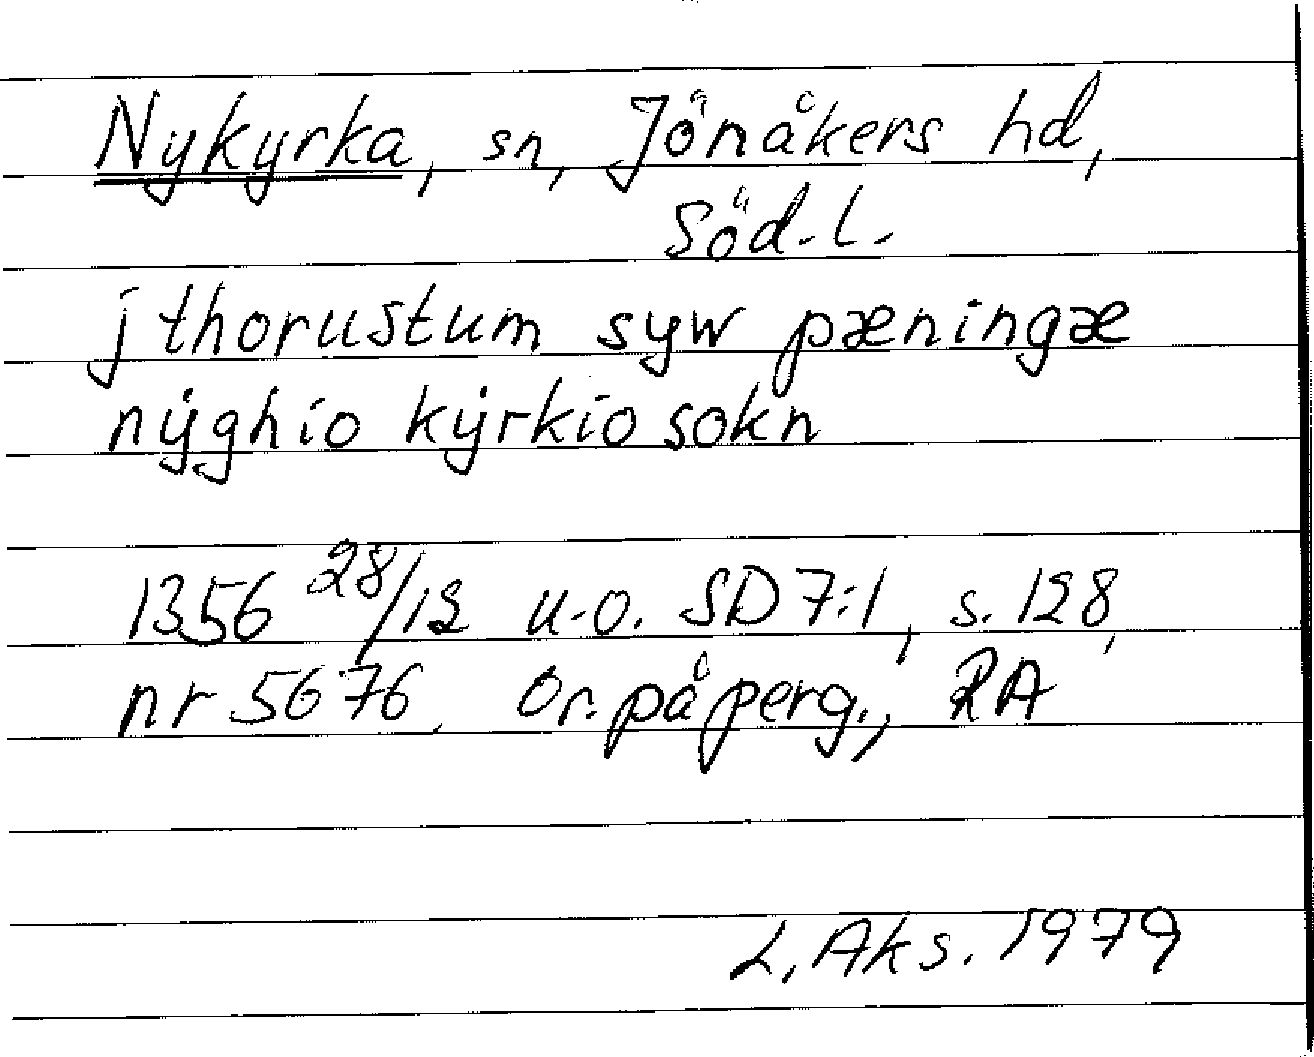 Nykyrka, sn, Jönåkers hd,
Söd. l.
j thorustum syw pæningæ
nẏghio kẏrkio sokn
1356 28/12 u.o. SD 7:1, s. 128,
nr 5676. Or. på perg., RA
L. Aks. 1979